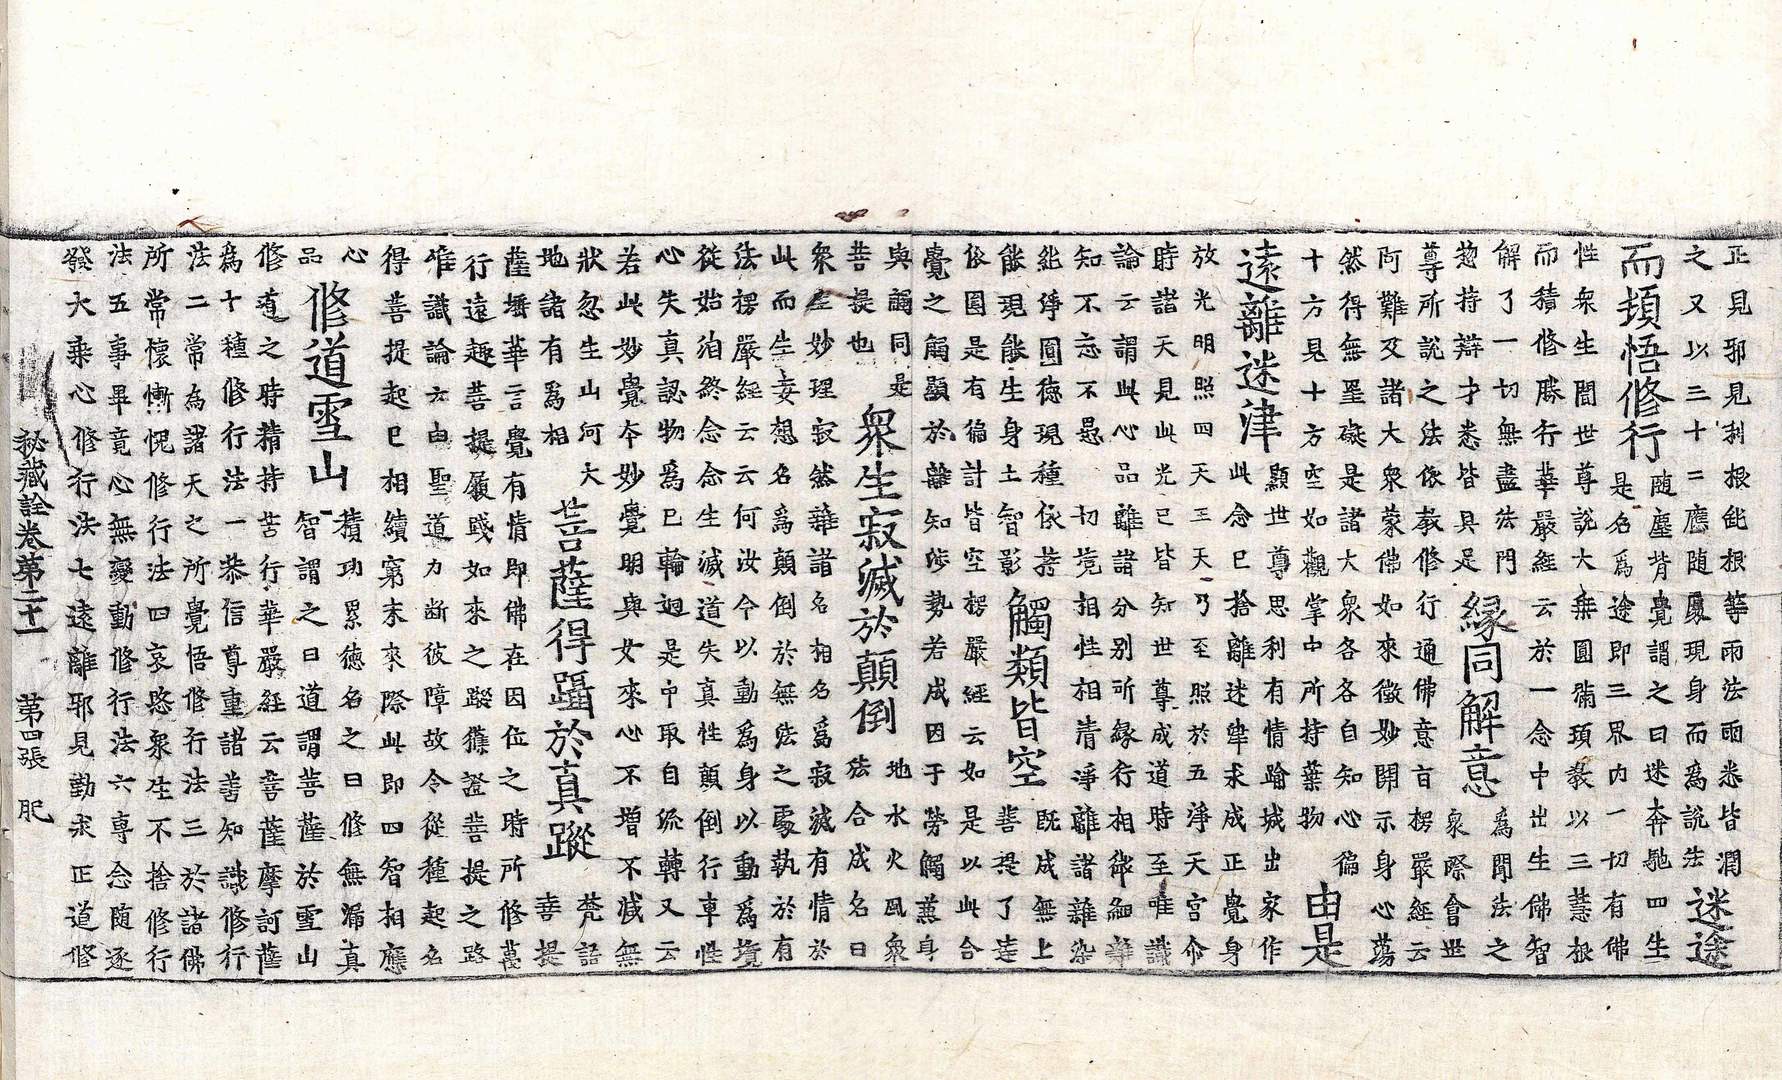 正見邪見利根鈍根等雨法雨悉皆潤
之又以三十二應随處現身而爲說法 迷途
而頓悟修行 随塵背覺謂之曰迷奔馳四生
是名爲途即三界内一切有佛
性衆生聞世尊說大乘圓滿頓教以三慧根
而積修勝行華嚴經云於一念中出生佛智
解了一切無盡法門
惣持辯才悉皆具足 縁同解意 爲聞法之
衆際會世
尊所說之法依教修行通佛意旨楞嚴經云
阿難及諸大衆蒙佛如來微妙開示身心蕩
然得無罣礙是諸大衆各各自知心徧
十方見十方空如觀掌中所持葉物 由是
遠離迷津 顯世尊思利有情踰城出家作
此念已捨離迷津求成正覺身
放光明照四天王天乃至照於五淨天宮令
時諸天見此光已皆知世尊成道時至唯識
論云謂此心品離諸分別所緣行相微細難
知不忘不愚一切境相性相清淨離諸雜染
純淨圓德現種依持
能現能生身土智影 觸類皆空 既成無上
菩提了達
依圓是有徧計皆空楞嚴經云如是以此合
覺之觸顯於離知渉勢若成因于勞觸兼身
與觸同是
菩提也 衆生寂滅於顛倒 地水火風衆
法合成名曰
衆生妙理寂然離諸名相名爲寂滅有情於
此而生妄想名爲顛倒於無法之處執於有
法楞嚴經云云何汝今以動爲身以動爲境
從始洎終念念生滅遺失真性顛倒行事性
心失真認物爲已輪迴是中取自流轉又云
若此妙覺本妙覺明與如來心不增不減無
狀忽生山河大
地諸有爲相 菩薩得躡於真蹤 梵語
菩提
薩埵華言覺有情即佛在因位之時所修萬
行遠趣菩提履踐如來之蹤獲證菩提之路
唯識論云由聖道力斷彼障故令從種起名
得菩提起已相續窮末來際此即四智相應
心
品 修道雪山 積功累德名之曰修無漏真
智謂之曰道謂菩薩於雪山
修道之時精持苦行華嚴經云菩薩摩訶薩
爲十種修行法一恭信尊重諸善知識修行
法二常為諸天之所覺悟修行法三於諸佛
所常懷慚愧修行法四哀愍衆生不捨修行
法五事畢竟心無變動修行法六專念随逐
發大乘心修行法七遠離邪見勤求正道修
秘藏詮卷第二十一 第四張 肥